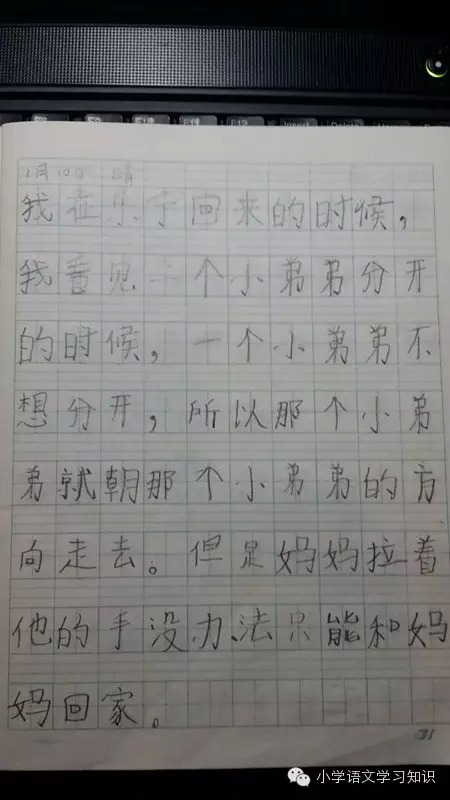 1月10日 晴
我在乐回来的时候，
我看见个小弟弟分开
的时候，一个小弟弟不
想分开，所以那个小弟
弟就朝那个小弟弟的方
向走去。但是妈妈拉着
他的手没办法只能和妈
妈回家。
31
小学语文学习知识